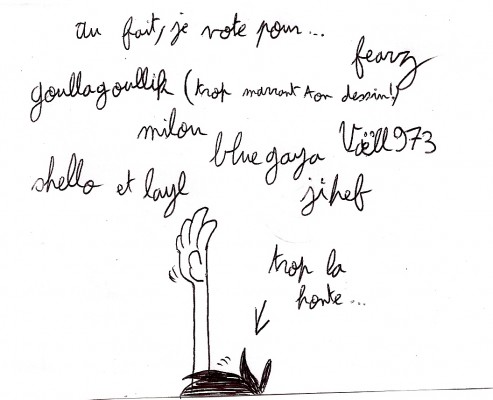 Au fait, je vote pour...
fearz
goullagoullik (trop marrant ton dessin!)
milou
blue gaya Vaëll973
shello et layl
jihef
trop la
honte...